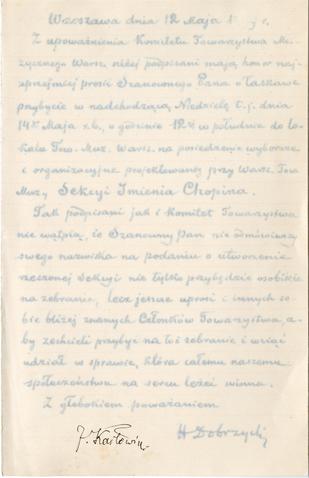 Warszawa dnia 12 Maja 1 r.
Z upoważnienia Komitetu Towarzystwa Mu-
zycznego Warsz. niżej podpisani mają honor naj-
uprzejmiej prosić Szanownego Pana o łaskawe
przybycie w nadchodzącą Niedzielę t. j. dnia
14go Maja r.b. o godzinie 12ej w południe do lo-
kalu Tow. Muz. Warsz. na posiedzenie wyborcze
i organizacyjne projektowanej przy Warsz. Tow
Muz. Sekcyi Imienia Chopina.
Tak podpisani jak i Komitet Towarzystwa
nie wątpią, że Szanowny Pan nie odmówiwszy
swego nazwiska na podaniu o utworzenie
rzeczonej Sekcyi nie tylko przybędzie osobiście
na zebranie, lecz jeszcze uprosi i innych so-
bie bliżej znanych Członków Towarzystwa, a-
by zechcieli przybyć na toż zebranie i wziąć
udział w sprawie, która całemu naszemu
społeczeństwu na sercu leżeć winna.
Z głębokiem poważaniem
J. Karłowicz H Dobrzycki